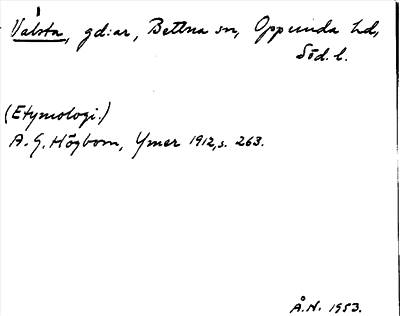 Valsta, gd:ar, Bettna sn, Oppunda hd,
Söd. l.
(Etymologi.)
A. G. Högbom, Ymer 1912, s. 263.
Å.N. 1953.